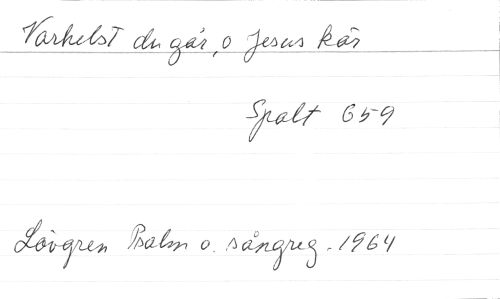 Varhelst du går, o Jesus kär
Spalt 659
Lövgren Psalm o. sångreg. 1964